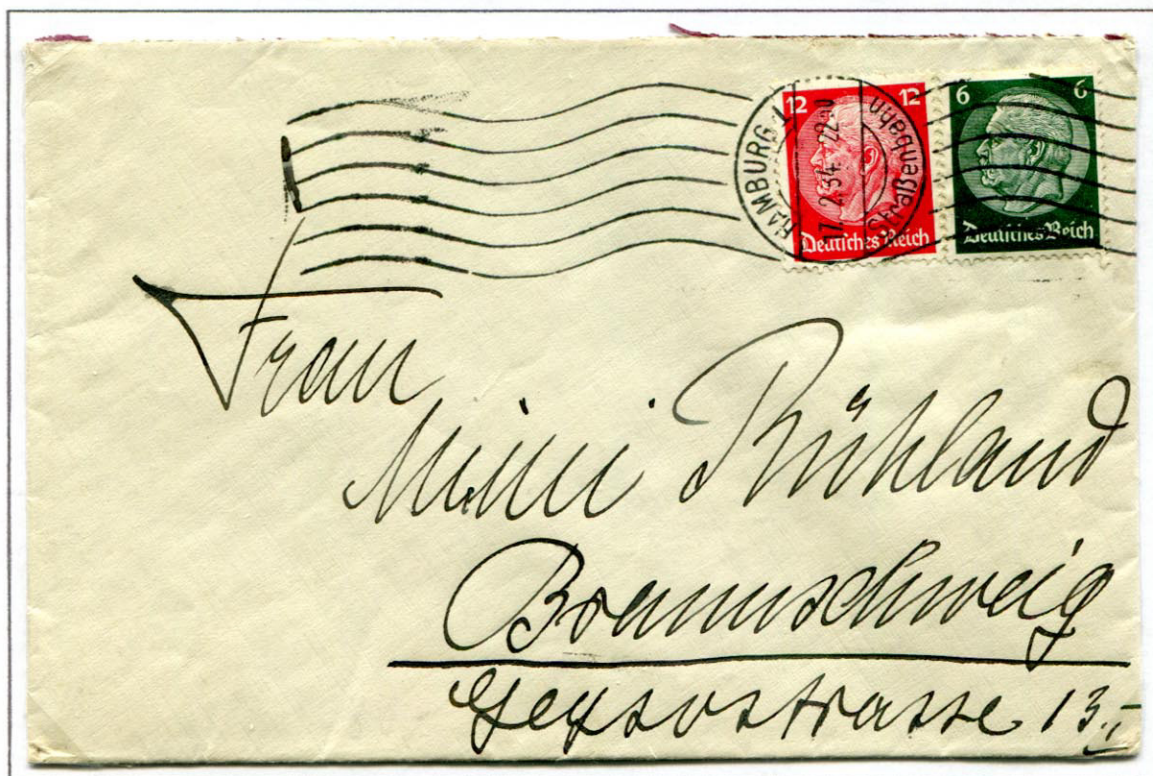 HAMBURG 1
17. 2.34.
Straßenbahn
12 12
Deutsches Reich
6 6
Deutsches Reich
Frau
Mimi Rühland
Braunschweig
Geysostrasse 13.I